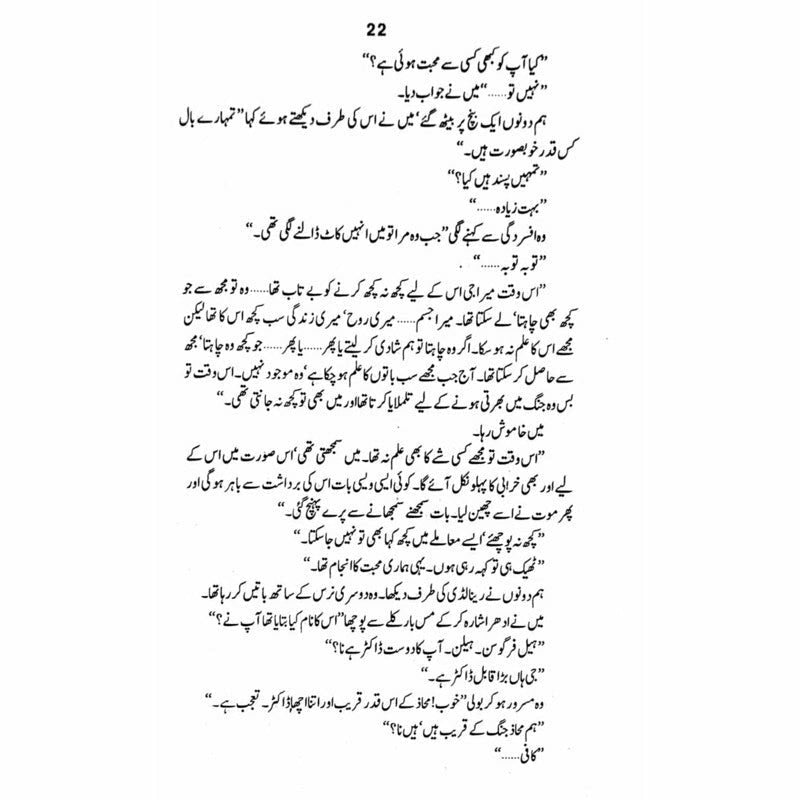 22
”کیا آپ کو کبھی کسی سے محبت ہوئی ہے؟“
”نہیں تو......“ میں نے جواب دیا۔
ہم دونوں ایک بنچ پر بیٹھ گئے‘ میں نے اس کی طرف دیکھتے ہوئے کہا ”تمہارے بال
کس قدر خوبصورت ہیں۔“
”تمہیں پسند ہیں کیا؟“
”بہت زیادہ......“
وہ افسردگی سے کہنے لگی ”جب وہ مرا تو میں انہیں کاٹ ڈالنے لگی تھی۔“
”توبہ توبہ......“
”اس وقت میرا جی اس کے لیے کچھ نہ کچھ کرنے کو بے تاب تھا......وہ تو مجھ سے جو
کچھ بھی چاہتا‘ لے سکتا تھا۔ میرا جسم......میری روح‘ میری زندگی سب کچھ اس کا تھا لیکن
مجھے اس کا علم نہ ہو سکا۔ اگر وہ چاہتا تو ہم شادی کر لیتے یا پھر......یا پھر......جو کچھ وہ چاہتا‘ مجھ
سے حاصل کر سکتا تھا۔ آج جب مجھے سب باتوں کا علم ہو چکا ہے‘ وہ موجود نہیں۔ اس وقت تو
بس وہ جنگ میں بھرتی ہونے کے لیے تلملایا کرتا تھا اور میں بھی تو کچھ نہ جانتی تھی۔“
میں خاموش رہا۔
”اس وقت تو مجھے کسی شے کا بھی علم نہ تھا۔ میں سمجھتی تھی‘ اس صورت میں اس کے
لیے اور بھی خرابی کا پہلو نکل آئے گا۔ کوئی ایسی ویسی بات اس کی برداشت سے باہر ہو گی اور
پھر موت نے اسے چھین لیا۔ بات سمجھنے سمجھانے سے پرے پہنچ گئی۔“
”کچھ نہ پوچھئے‘ ایسے معاملے میں کچھ کہا بھی تو نہیں جا سکتا۔“
”ٹھیک ہی تو کہہ رہی ہوں۔ یہی ہماری محبت کا انجام تھا۔“
ہم دونوں نے رینالڈی کی طرف دیکھا۔ وہ دوسری نرس کے ساتھ باتیں کر رہا تھا۔
میں نے ادھر اشارہ کر کے مس بارکلے سے پوچھا ”اس کا نام کیا بتایا تھا آپ نے؟“
”ہیل فرگوسن۔ ہیلن۔ آپ کا دوست ڈاکٹر ہے نا؟“
”جی ہاں بڑا قابل ڈاکٹر ہے۔“
وہ مسرور ہو کر بولی ”خوب! محاذ کے اس قدر قریب اور اتنا اچھا ڈاکٹر۔ تعجب ہے۔“
”ہم محاذ جنگ کے قریب ہیں‘ ہیں نا؟“
”کافی......“